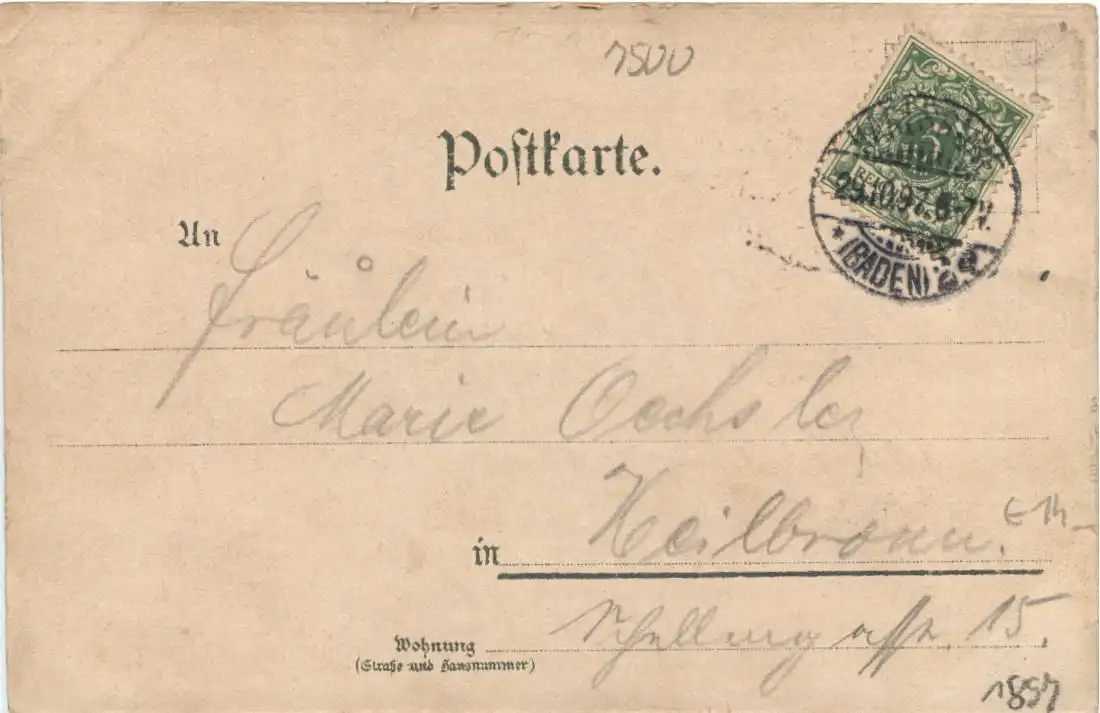 1500
Postkarte.
5
29.10.97. 6-7N.
*(BADEN)*
An
Fräulein
Marie Oechsler
in Heilbronn.
Wohnung
(Straße und Hausnummer)
15.
1897